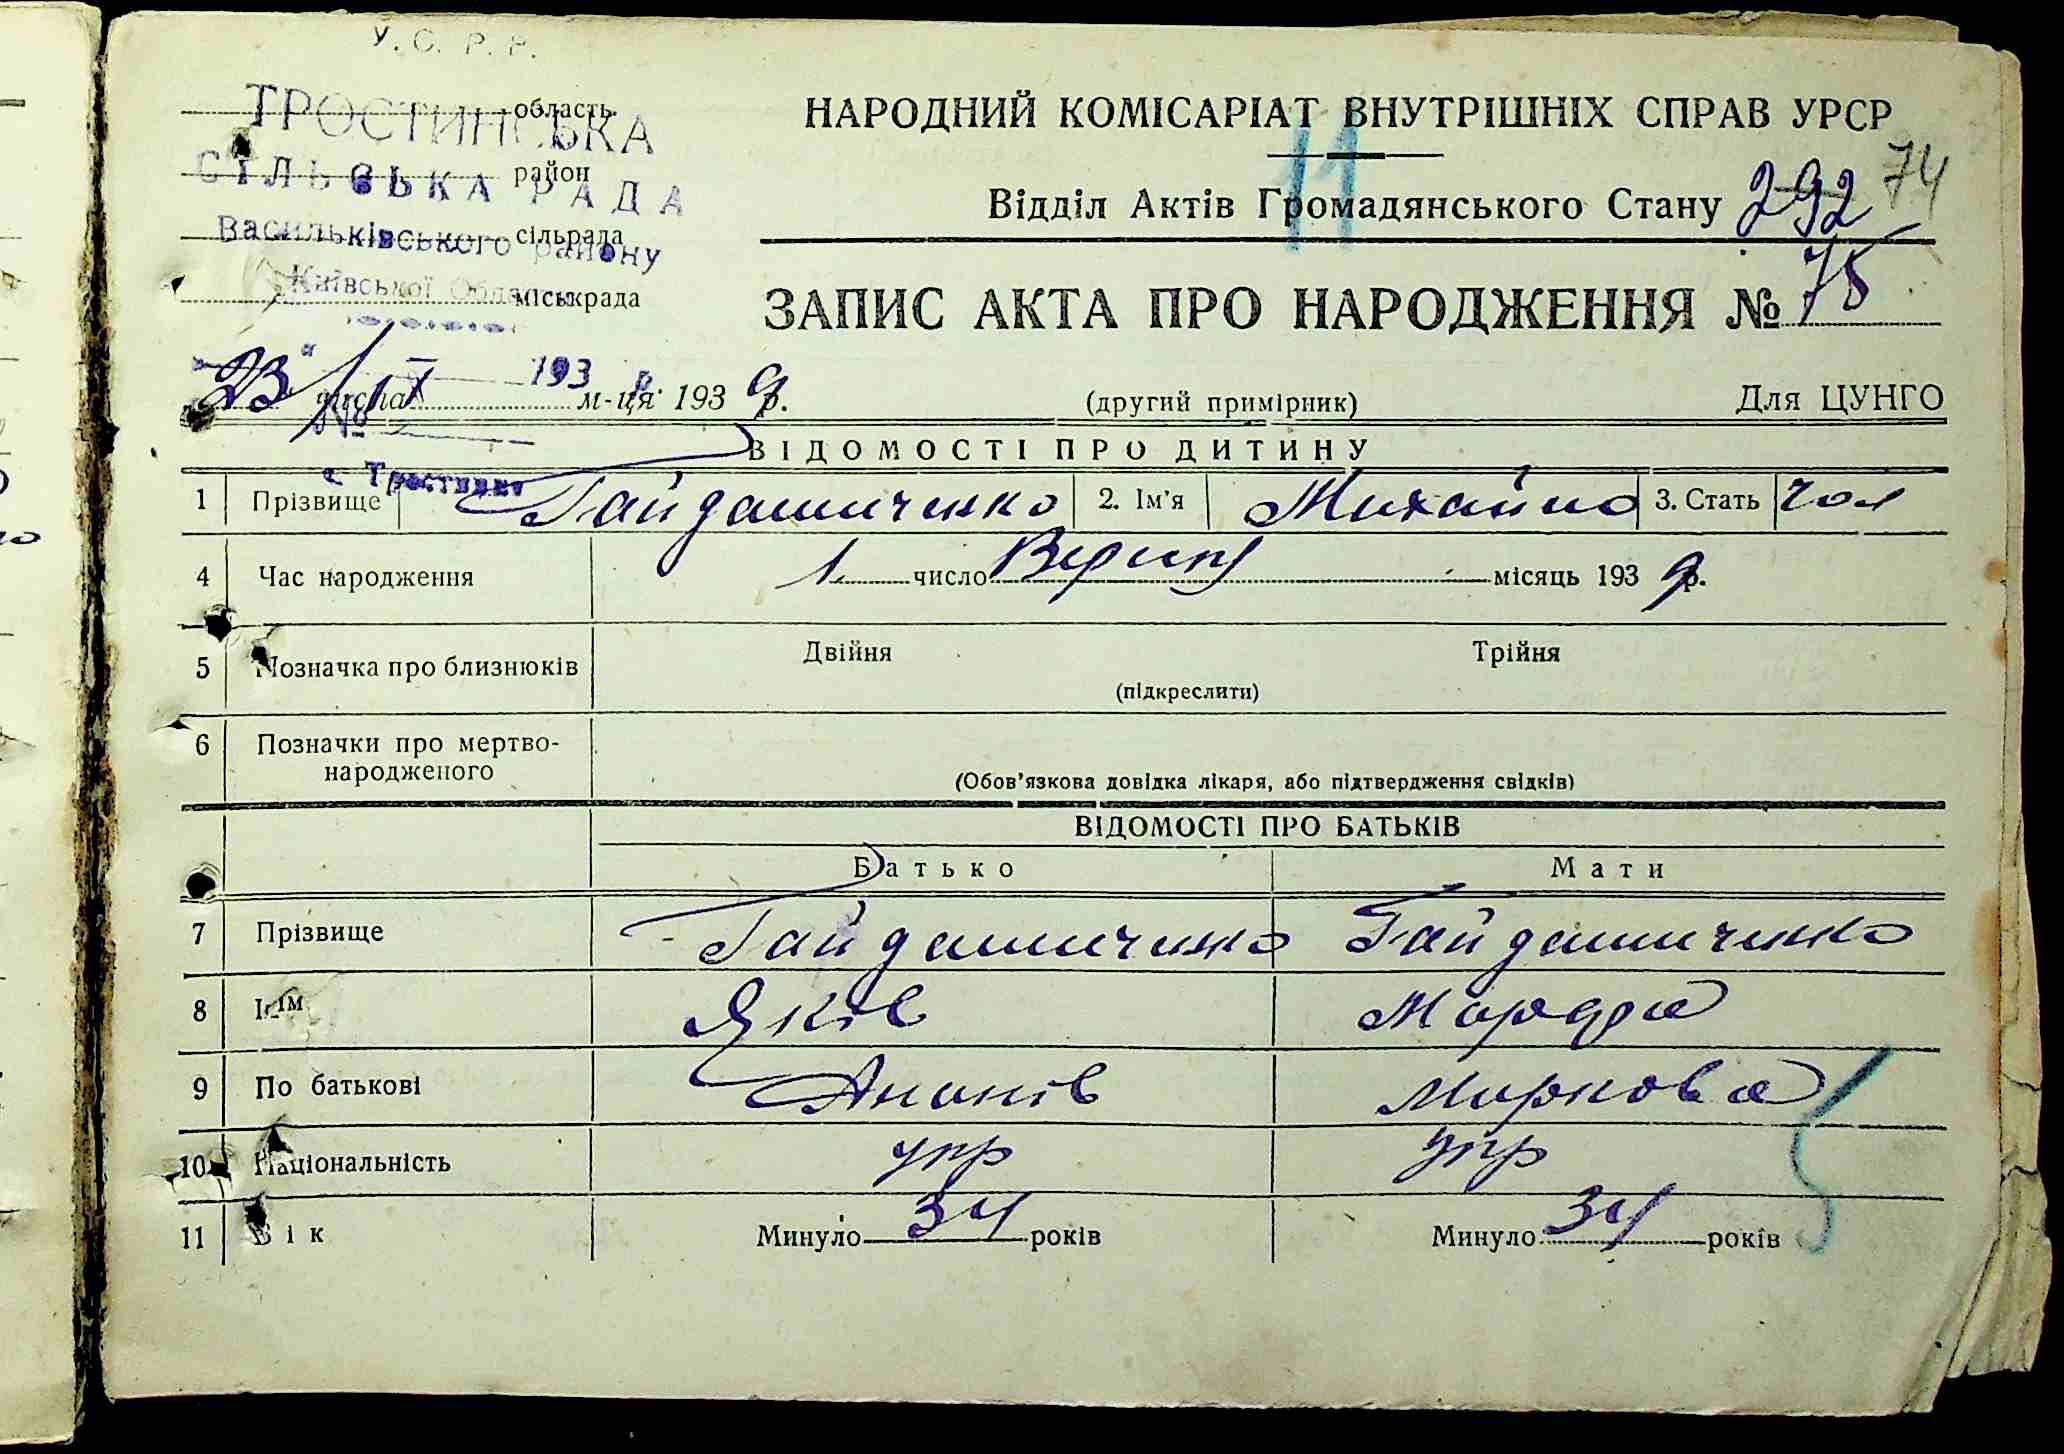 У. С. Р. Р.
ТРОСТИНСЬКА область
СІЛЬСЬКА РАДА район
Васильківського району сільрада
Київської Області міськрада
НАРОДНИЙ КОМІСАРІАТ ВНУТРІШНІХ СПРАВ УРСР
11
74
Відділ Актів Громадянського Стану 292
ЗАПИС АКТА ПРО НАРОДЖЕННЯ № 75
193 р.
23 числа ІХ м-ця 1939 р. (другий примірник) Для ЦУНГО
№
с. Тростинка
ВІДОМОСТІ ПРО ДИТИНУ
1 Прізвище Гайдашиченко 2. Ім'я Михайло 3. Стать чол
4 Час народження 1 число Верисн місяць 1939 р.
5 Позначка про близнюків Двійня Трійня
(підкреслити)
6 Позначки про мертво-
народженого
(Обов'язкова довідка лікаря, або підтвердження свідків)
ВІДОМОСТІ ПРО БАТЬКІВ
Батько Мати
7 Прізвище Гайдашиченко Гайдашиченко
8 Ім'я Яків
9 По батькові Ананів Маркова
10 Національність укр укр
11 Вік Минуло 34 років Минуло 34 років